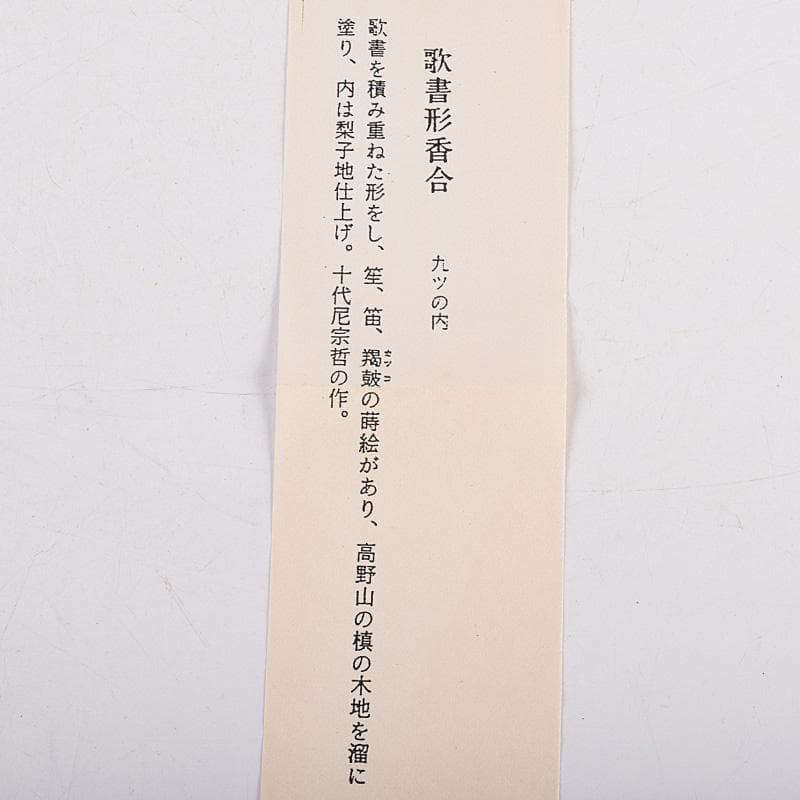 歌書形香合　九ッの内
歌書を積み重ねた形をし、笙、笛、羯鼓の蒔絵があり、高野山の槙の木地を溜に
カッコ
塗り、内は梨子地仕上げ。十代尼宗哲の作。